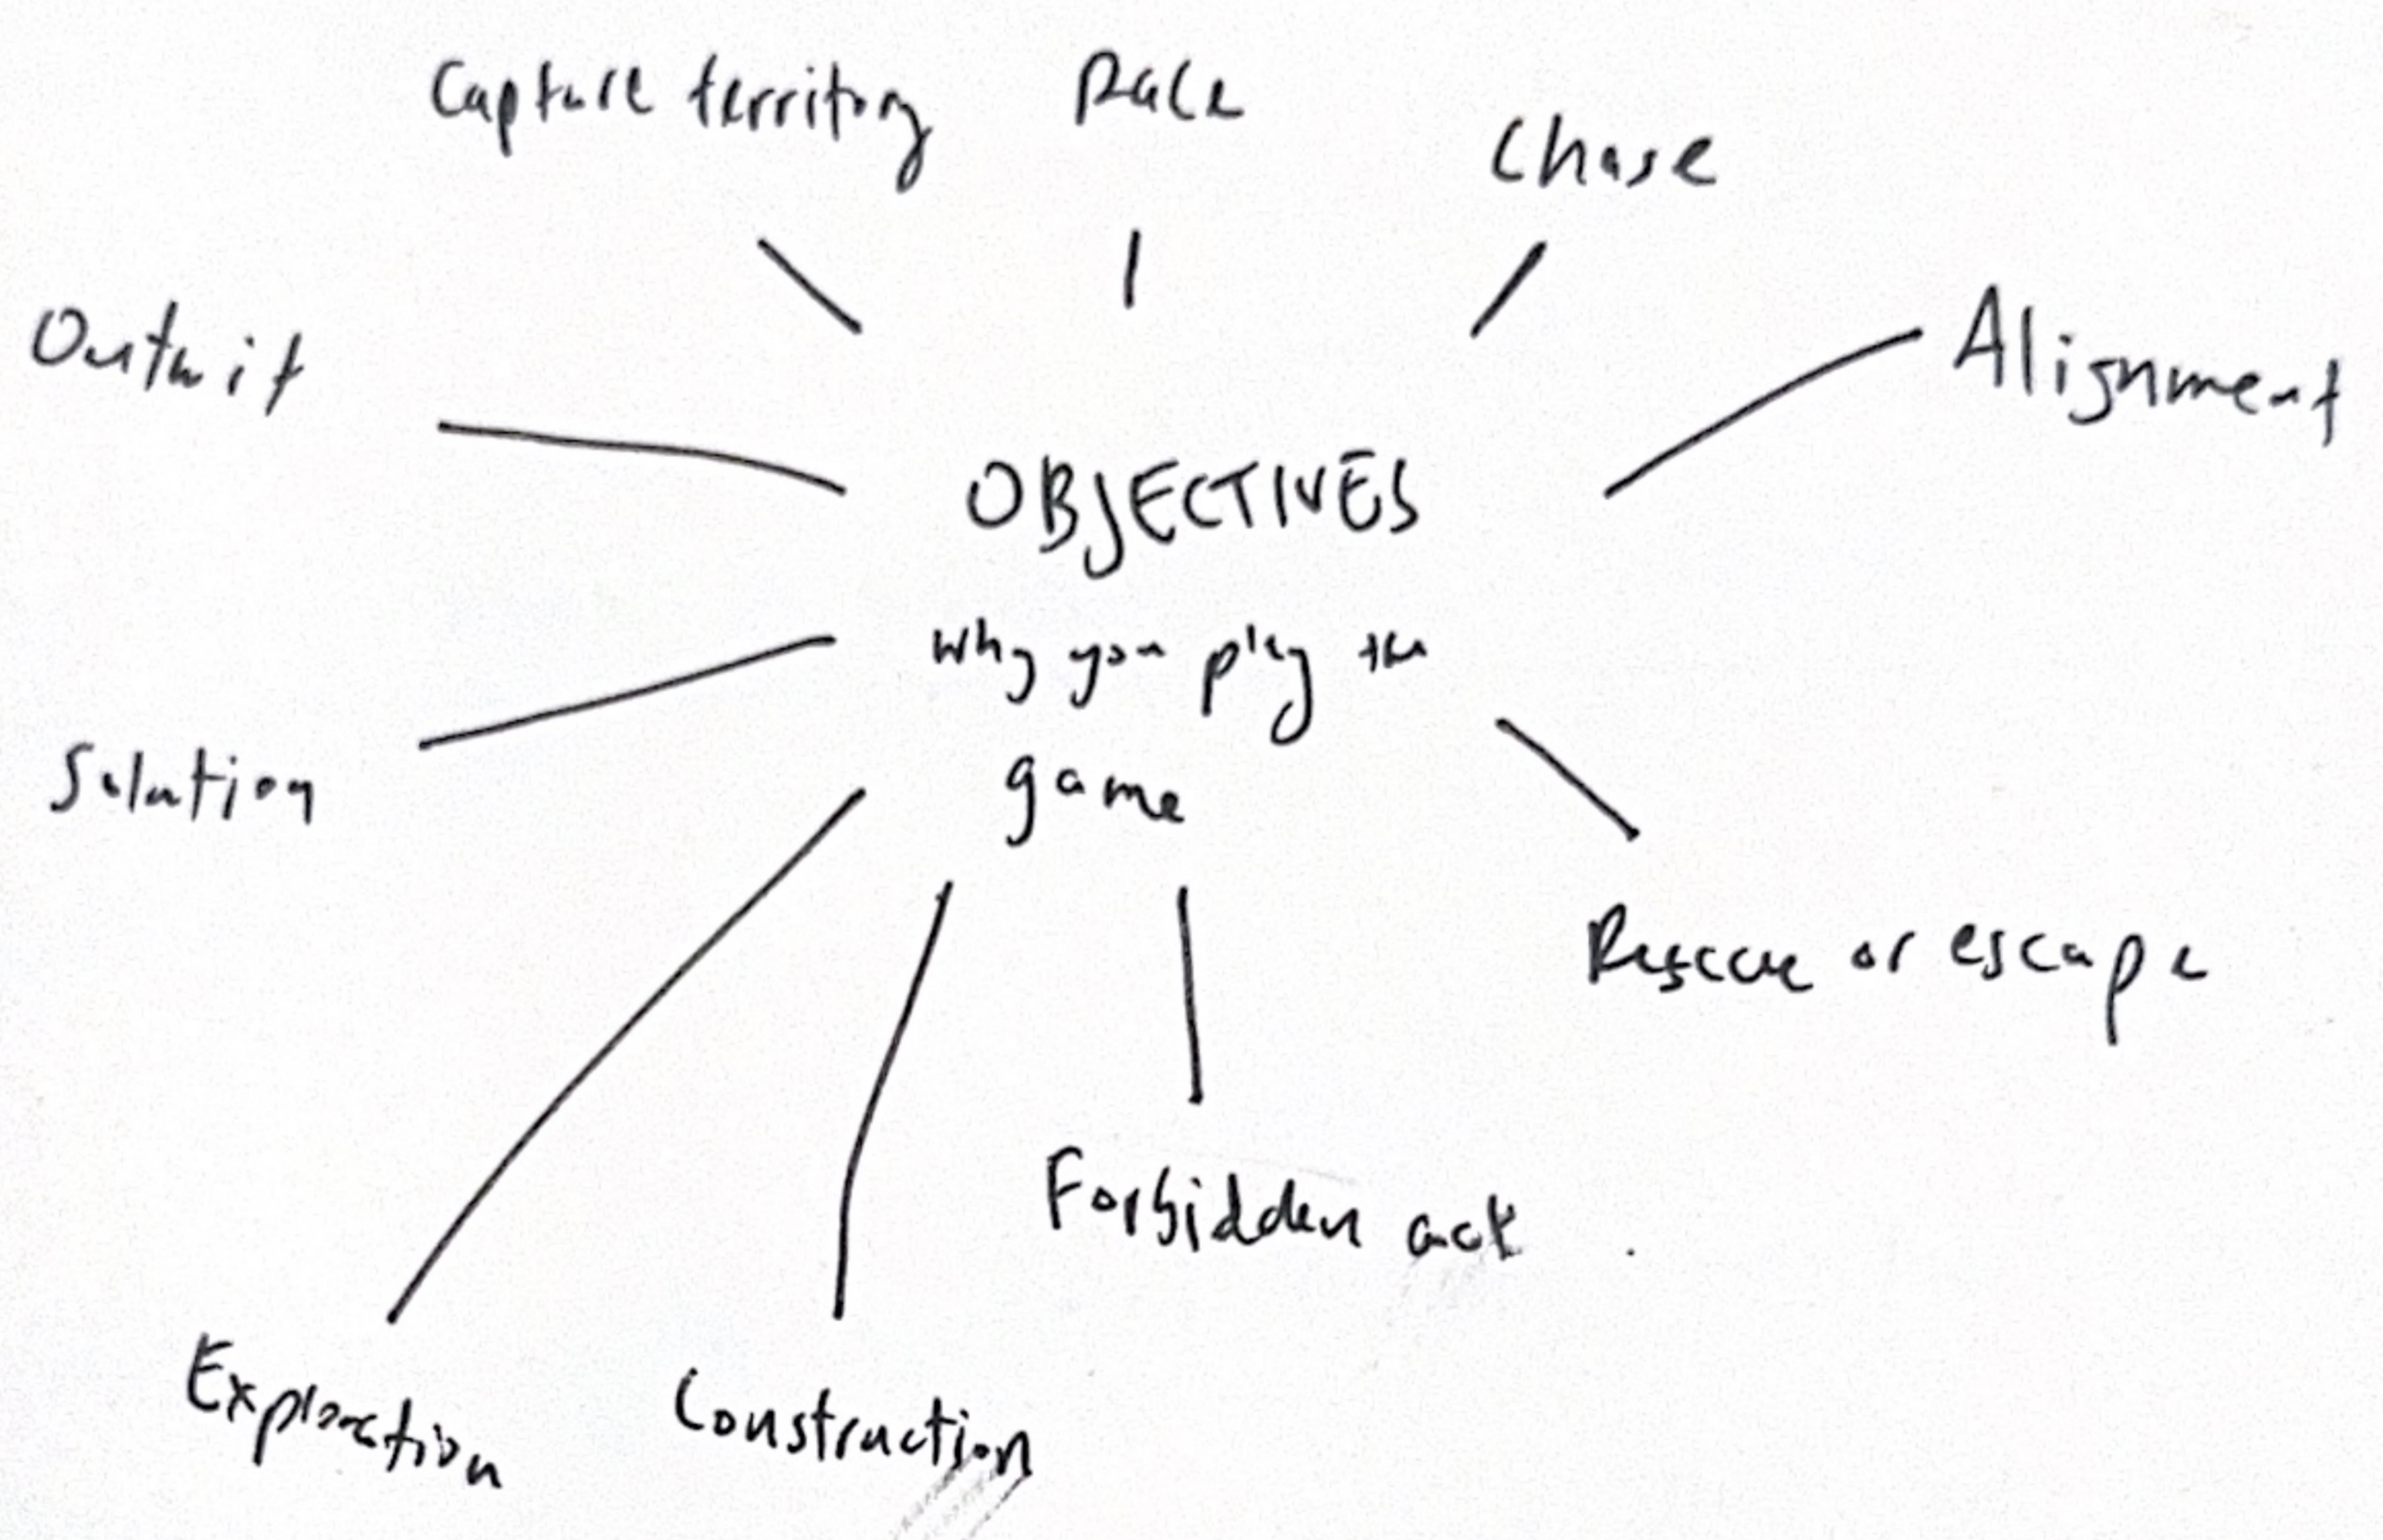 Capture territory
Race
Chase
Alignment
Outwit
OBJECTIVES
Why you play the
game
Solution
Rescue or escape
Forbidden act
Exploration
Construction